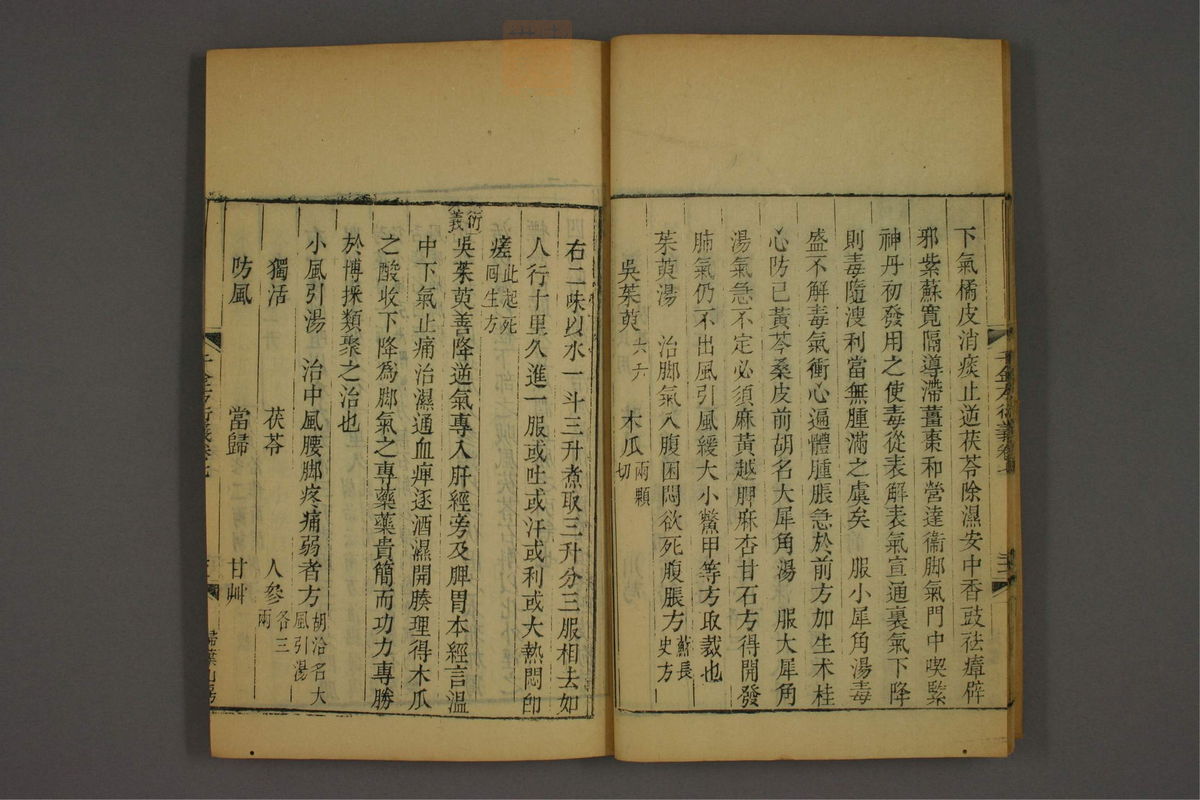 下氣橘皮消痰止逆茯苓除濕安中香豉祛瘴辟
邪紫蘇寬隔導滯薑棗和營達衞脚氣門中喫緊
神丹初發用之使毒從表解表氣宣通裏氣下降
則毒隨溲利當無腫滿之虞矣　服小犀角湯毒
盛不解毒氣衝心遍體腫脹急於前方加生术桂
心防已黃芩桑皮前胡名大犀角湯　服大犀角
湯氣急不定必須麻黃越脾麻杏甘石方得開發
肺氣仍不出風引風緩大小鱉甲等方取裁也
茱萸湯　治脚氣入腹困悶欲死腹脹方蘇長史方
吳茱萸六升　木瓜兩顆切
千金方衍義卷七
右二味以水一斗三升煮取三升分三服相去如
人行十里久進一服或吐或汗或利或大熱悶卽
瘥此起死回生方
衍義吳茱萸善降逆氣專入肝經旁及脾胃本經言溫
中下氣止痛治濕通血痺逐酒濕開腠理得木瓜
之酸收下降爲脚氣之專藥藥貴簡而功力專勝
於博採類聚之治也
小風引湯　治中風腰脚疼痛弱者方胡洽名大風引湯
獨活　茯苓　人參各三兩
防風　當歸　甘艸
千金方衍義卷七
掃葉山房